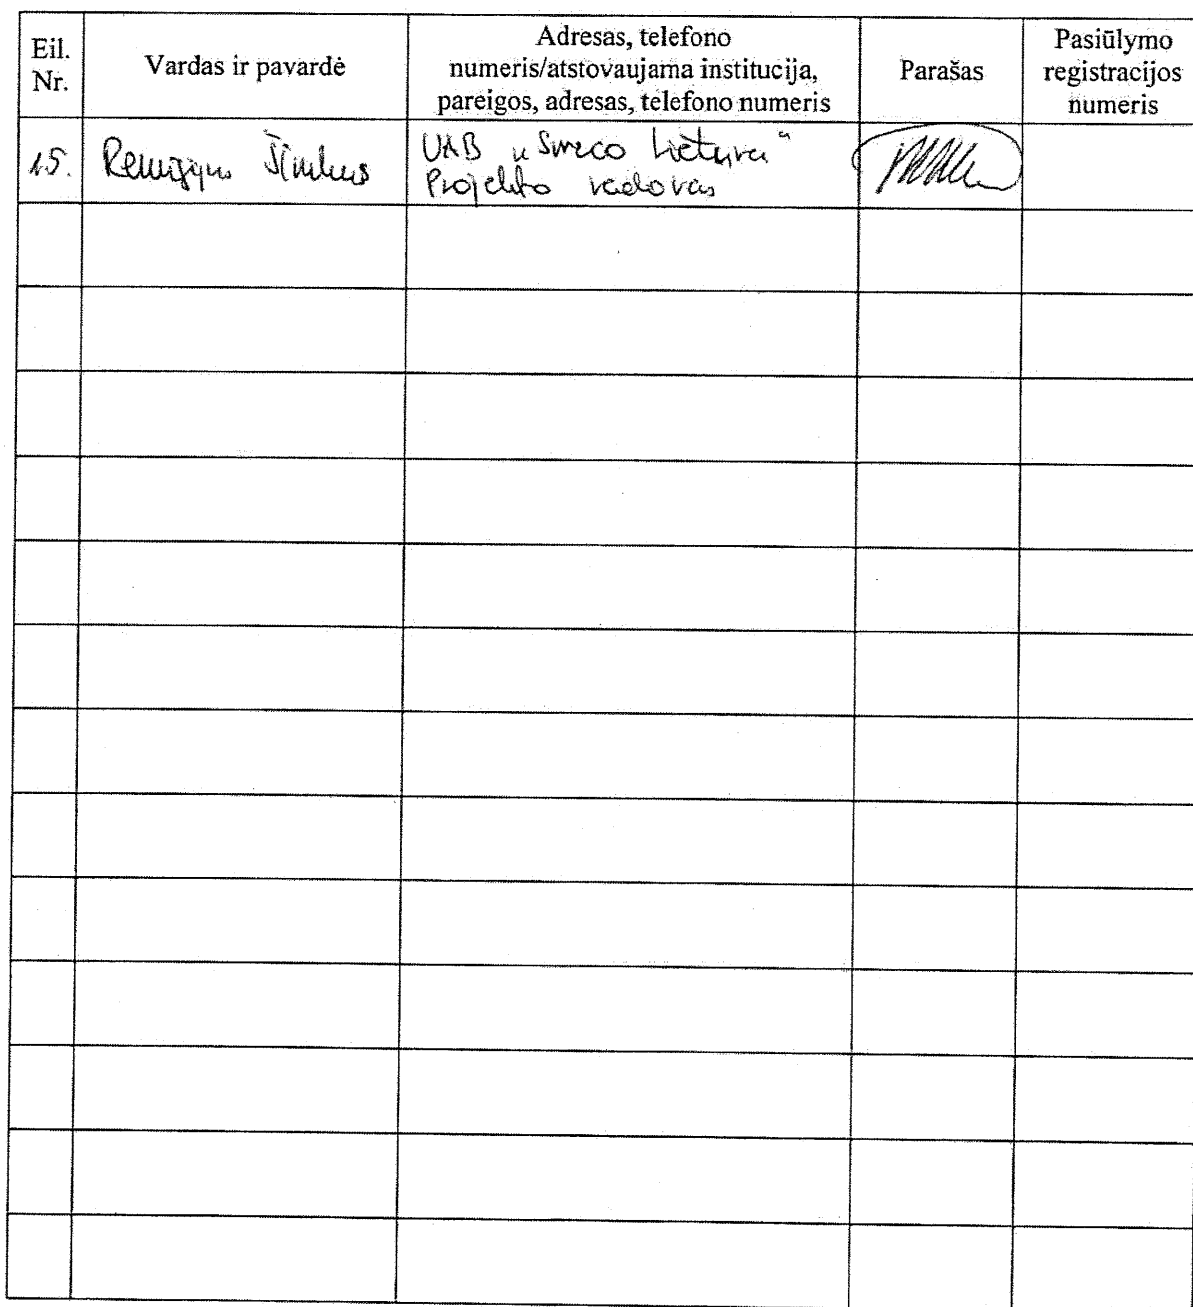 Eil.
Nr.
Vardas ir pavardė
Adresas, telefono
numeris/atstovaujama institucija,
pareigos, adresas, telefono numeris
Parašas
Pasiūlymo
registracijos
numeris
15.
Remigijus Šimkus
UAB „Sweco Lietuva“
Projekto vadovas